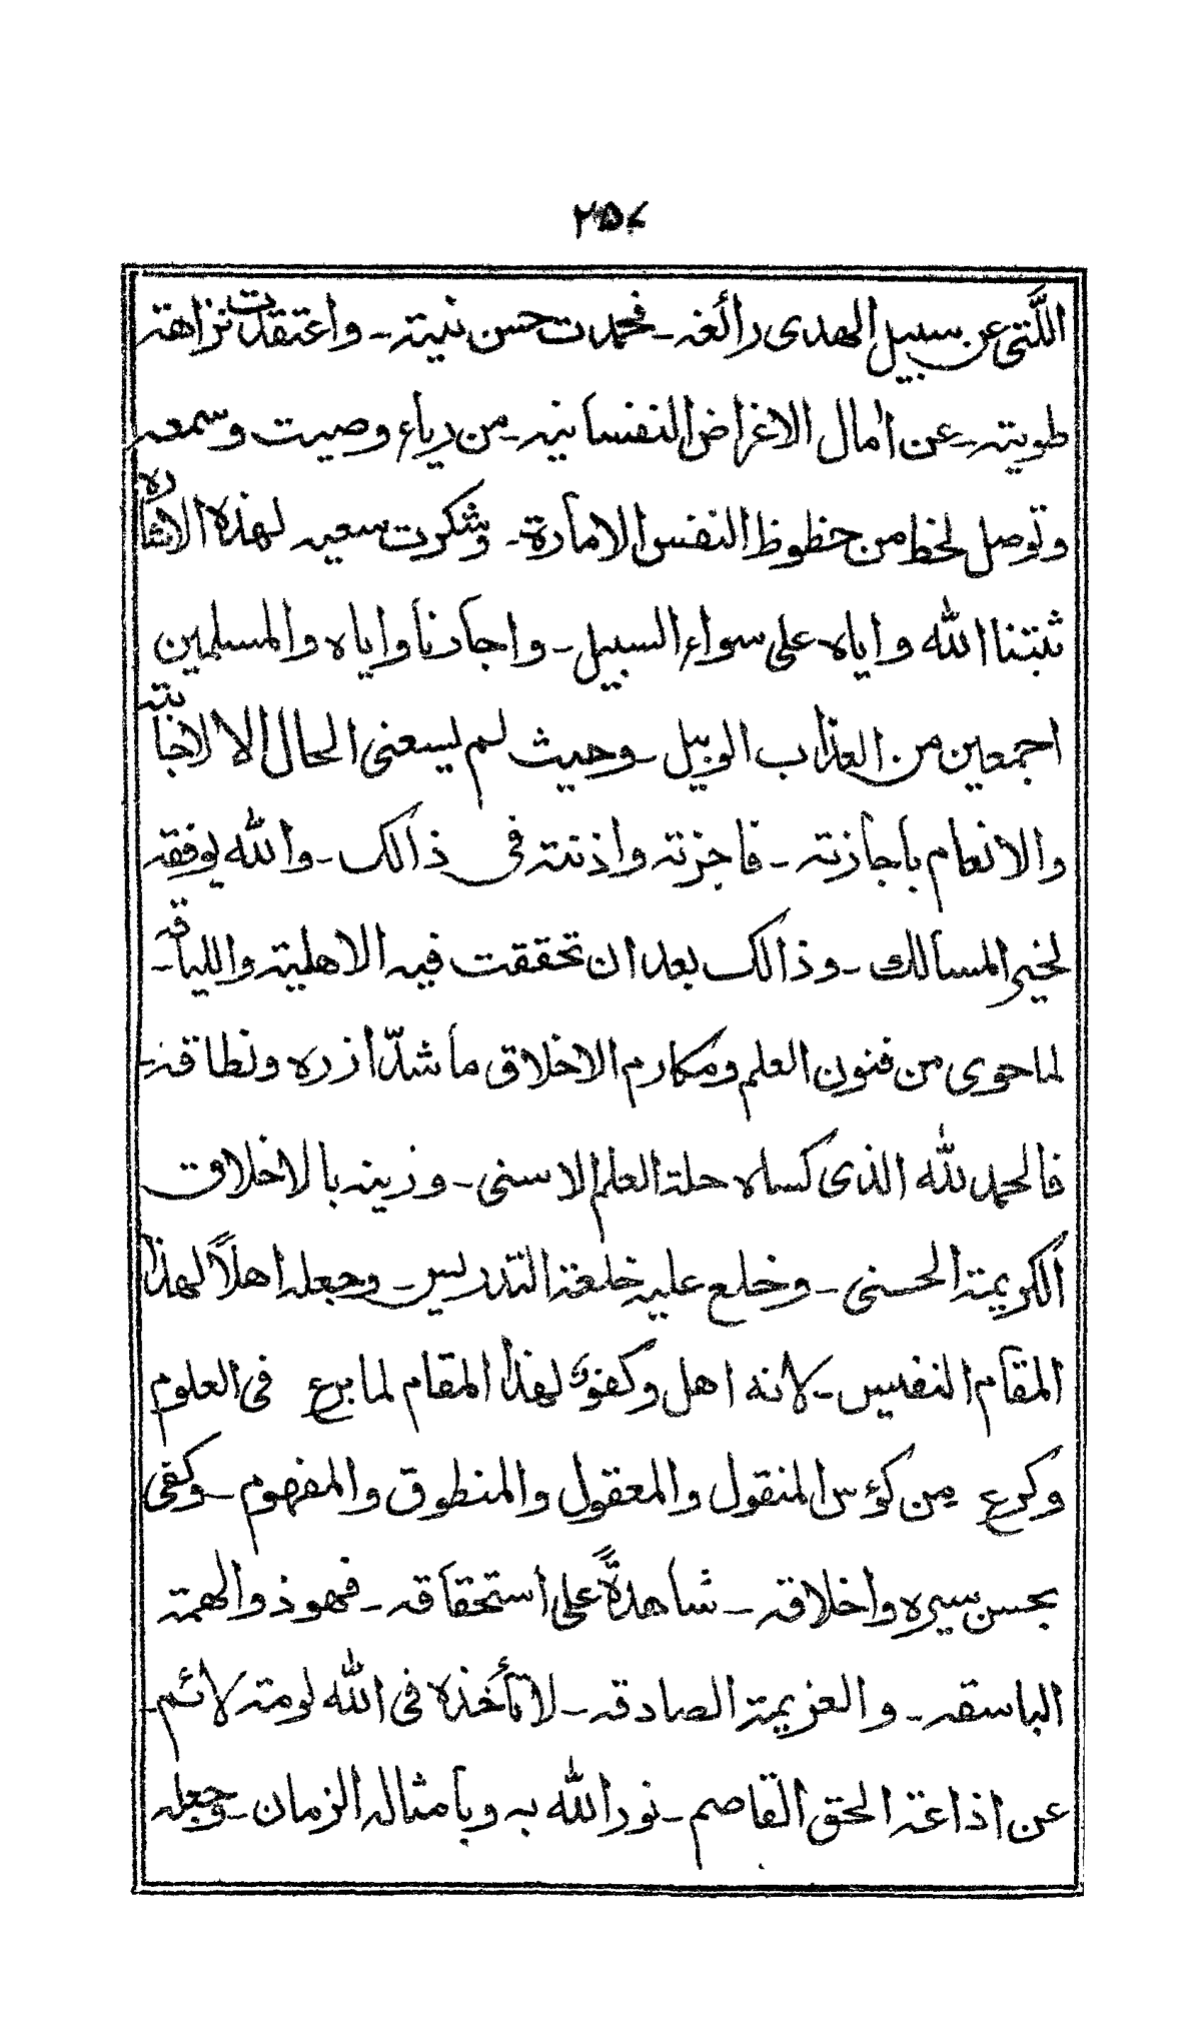 ٢٥٧
اللّتی عن سبیل الهدی رائغه ـ فحمدت حسن نیته ـ واعتقدت نزاهة
طویته ـ عن امال الاغراض النفسانیه ـ من ریاء وصیت وسمعه
وتوصل لحظ من حظوظ النفس الامارة ـ وشکرت سعیه لهذه الاشاره
ثبتنا الله وایاه علی سواء السبیل ـ واجارنا وایاه والمسلمین
اجمعین من العذاب الوبیل ـ وحیث لم یسعنی الحال الا لاجابته
والانعام باجازته ـ فاجزته واذنته فی ذالک ـ والله یوفقه
لخیر المسالک ـ وذالک بعد ان تحققت فیه الاهلیة واللیاقه ـ
لما حوی من فنون العلم ومکارم الاخلاق ما شدّ ازره ونطاقه ـ
فالحمد لله الذی کساه حلة العلم الاسنی ـ وزینه بالاخلاق
الکریمة الحسنی ـ وخلع علیه خلعة التدریس ـ وجعله اهلاً لهذا
المقام النفیس ـ لانه اهل وکفؤ لهذا المقام لما برع فی العلوم
وکرع من کؤس المنقول والمعقول والمنطوق والمفهوم ـ وکفی
بحسن سیره واخلاقه ـ شاهدةً علی استحقاقه ـ فهو ذو الهمة
الباسقه ـ والعزیمة الصادقه ـ لا تأخذه فی الله لومة لائم ـ
عن اذاعة الحق القاصم ـ نور الله به وبامثاله الزمان ـ وجعله